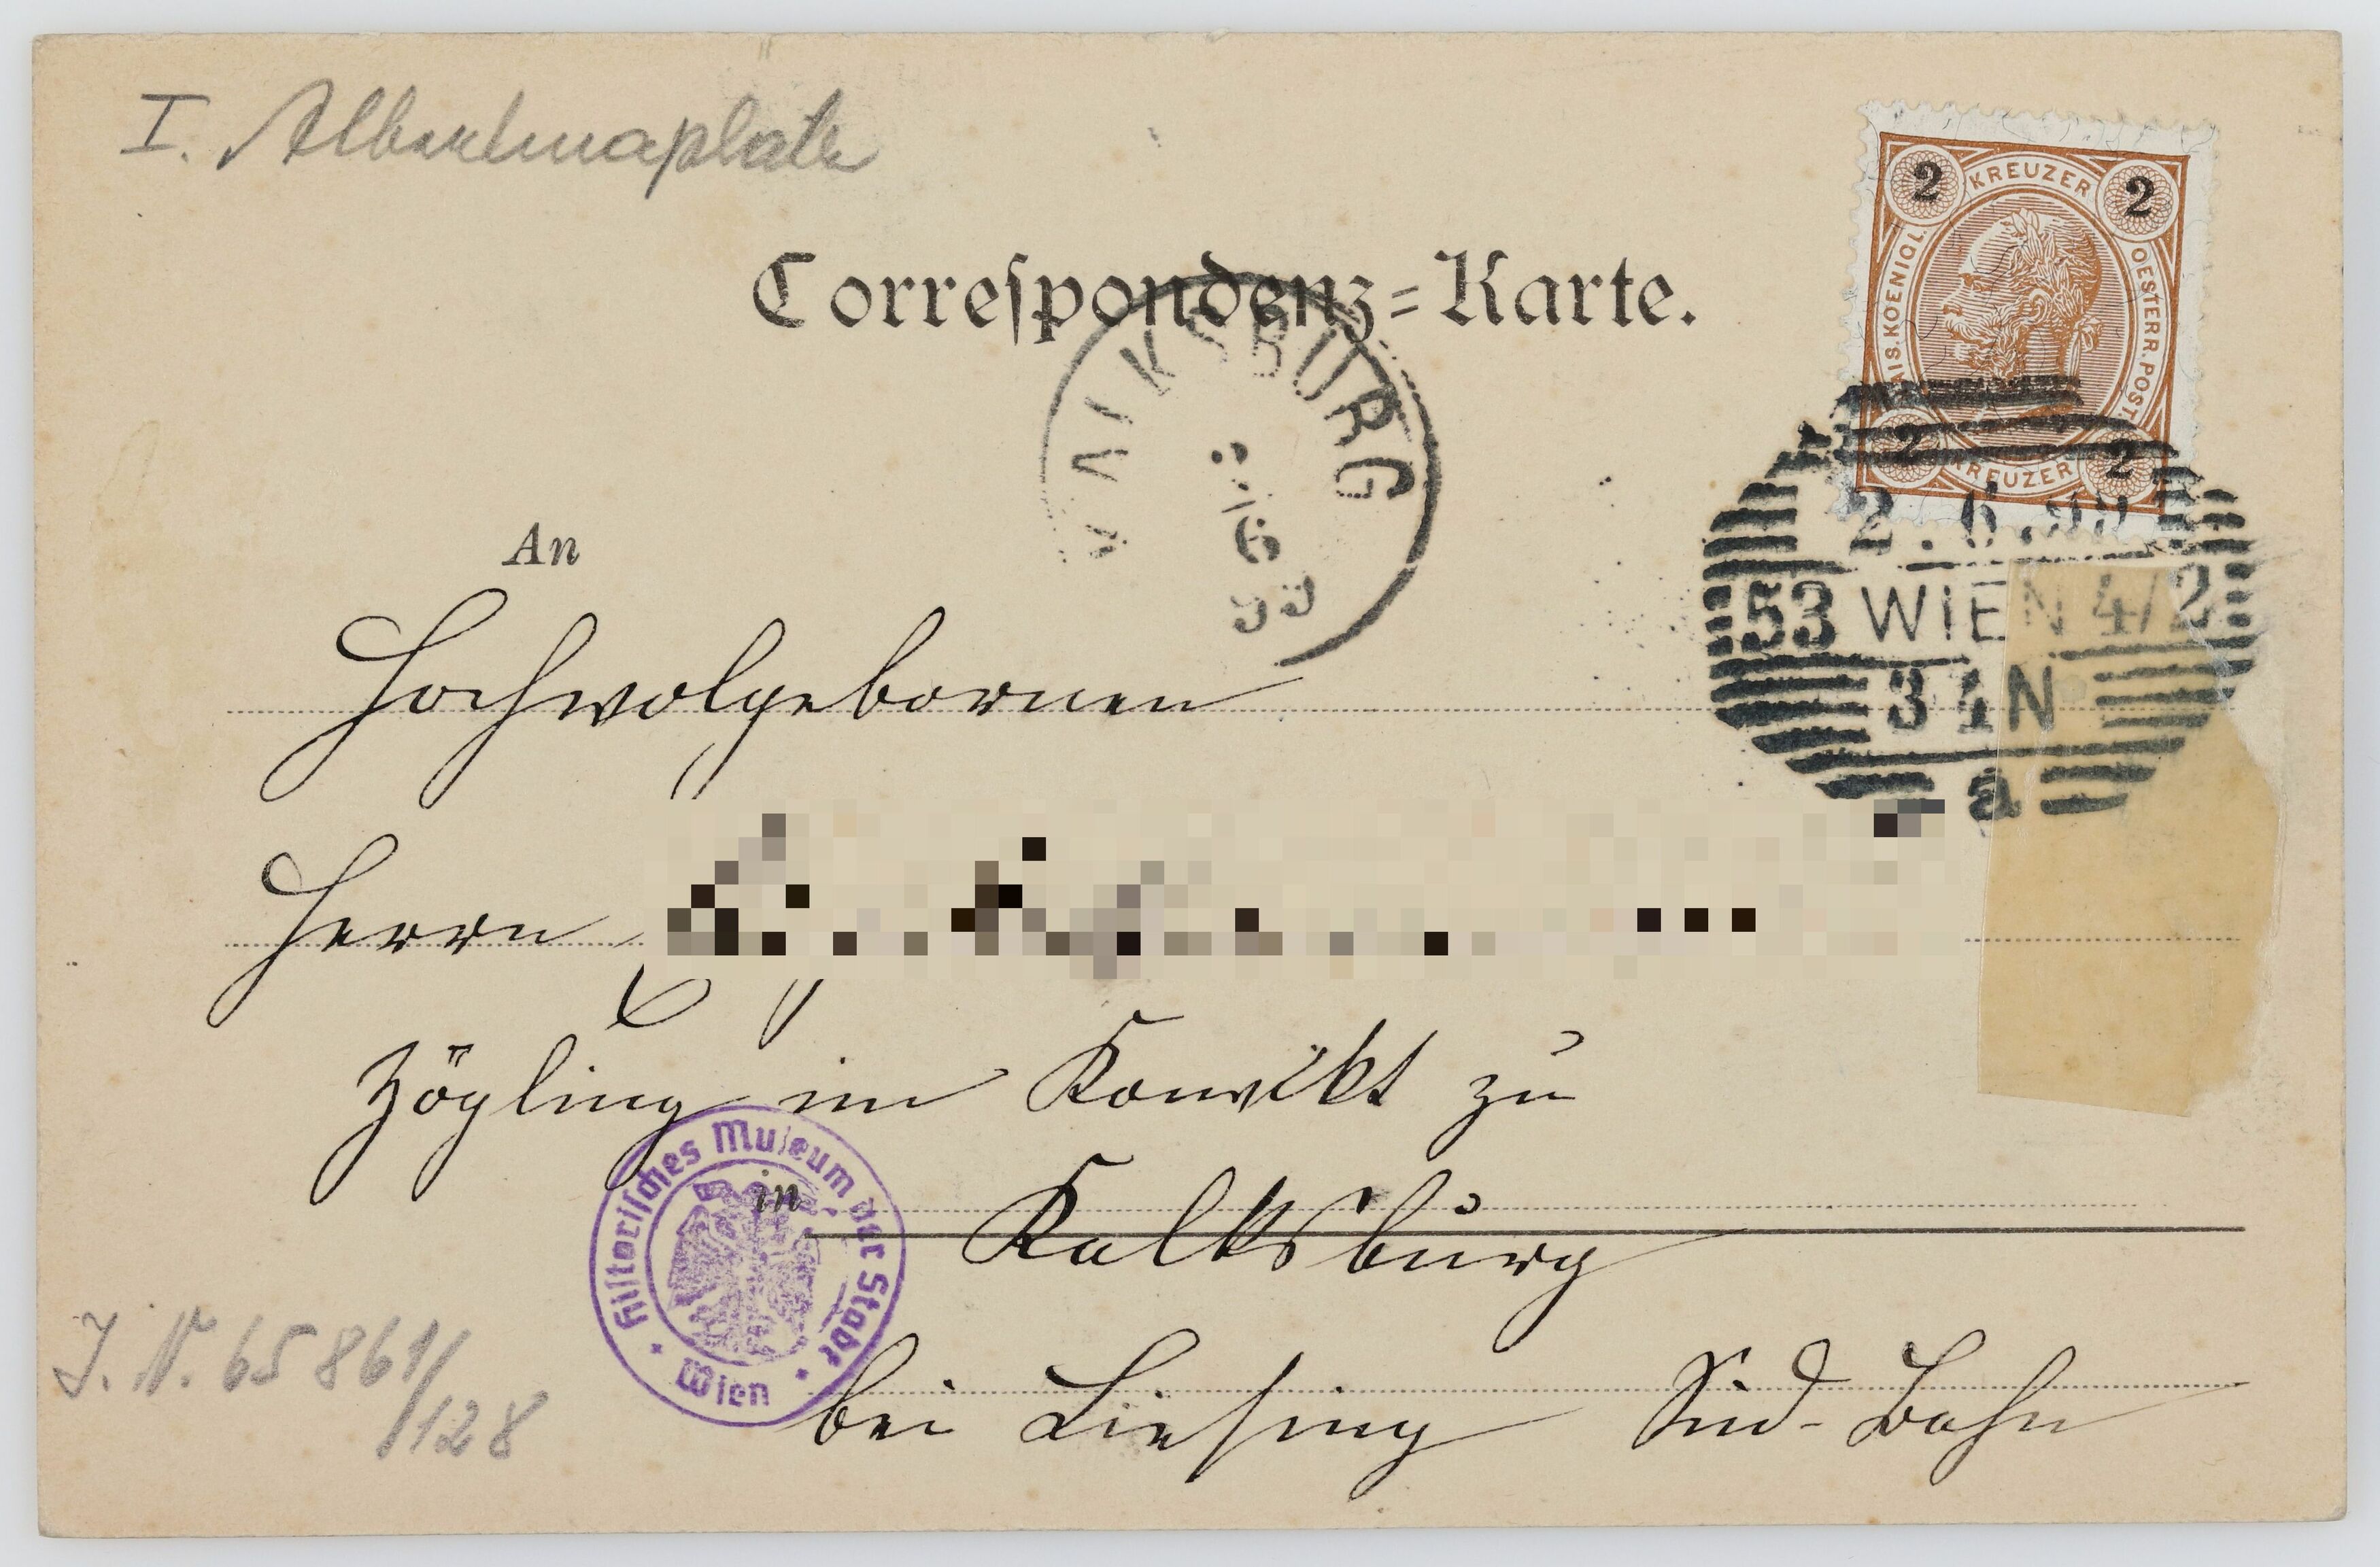 I. Albertinaplatz
2 KREUZER 2
KAIS. KOENIGL. OESTERR. POST.
2 KREUZER 2
Correspondenz=Karte.
KALKSBURG
2 6 99
2.6.99
53 WIEN 4/2
3 4 N
a
An
Hochwolgebornen
Herrn
Zögling im Konvikt zu
in Kalksburg
bei Liesing Süd-Bahn
Historisches Museum der Stadt Wien
J. N. 65861/
/128